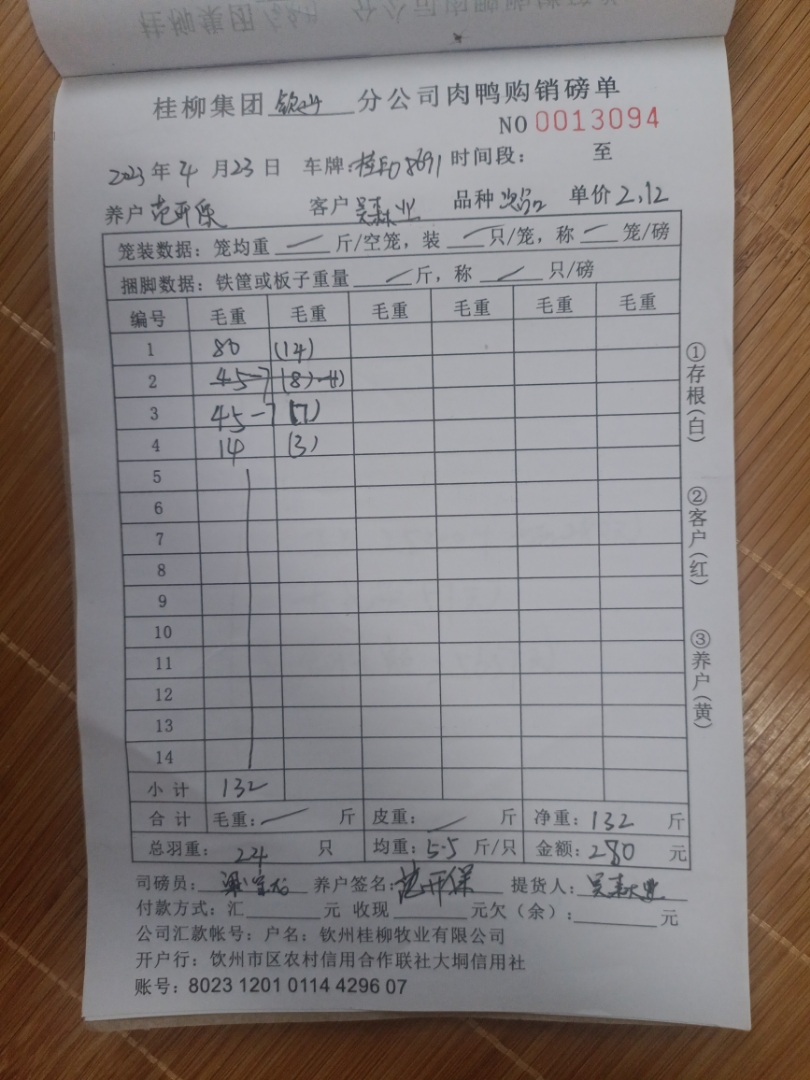 桂柳集团 钦州 分公司肉鸭购销磅单
NO 0013094
2023年4月23日 车牌:桂 08691 时间段: 至
养户 范开保 客户 吴春业 品种 单价 2.12
笼装数据:笼均重 — 斤/空笼,装 — 只/笼,称 — 笼/磅
捆脚数据:铁筐或板子重量 — 斤,称 — 只/磅
编号 毛重 毛重 毛重 毛重 毛重 毛重
1 80 (14)
2 45-7 (8)
3 45-7 (7)
4 14 (3)
5
6
7
8
9
10
11
12
13
14
小计 132
合计 毛重: — 斤 皮重: — 斤 净重:132 斤
总羽重: 24 只 均重:5.5 斤/只 金额:280 元
司磅员: 养户签名:范开保 提货人:吴春业
付款方式:汇 元 收现 元欠(余): 元
公司汇款帐号:户名:钦州桂柳牧业有限公司
开户行:饮州市区农村信用合作联社大垌信用社
账号:8023 1201 0114 4296 07
①存根(白)
②客户(红)
③养户(黄)